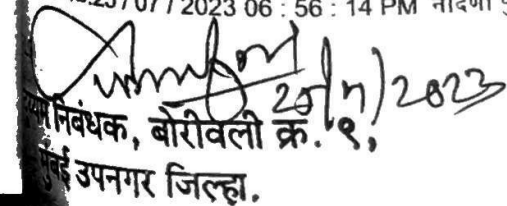 25/07/2023 06 : 56 : 14 PM नोंदणी
25/7/2023
निबंधक, बोरीवली क्र. ९,
मुंबई उपनगर जिल्हा.